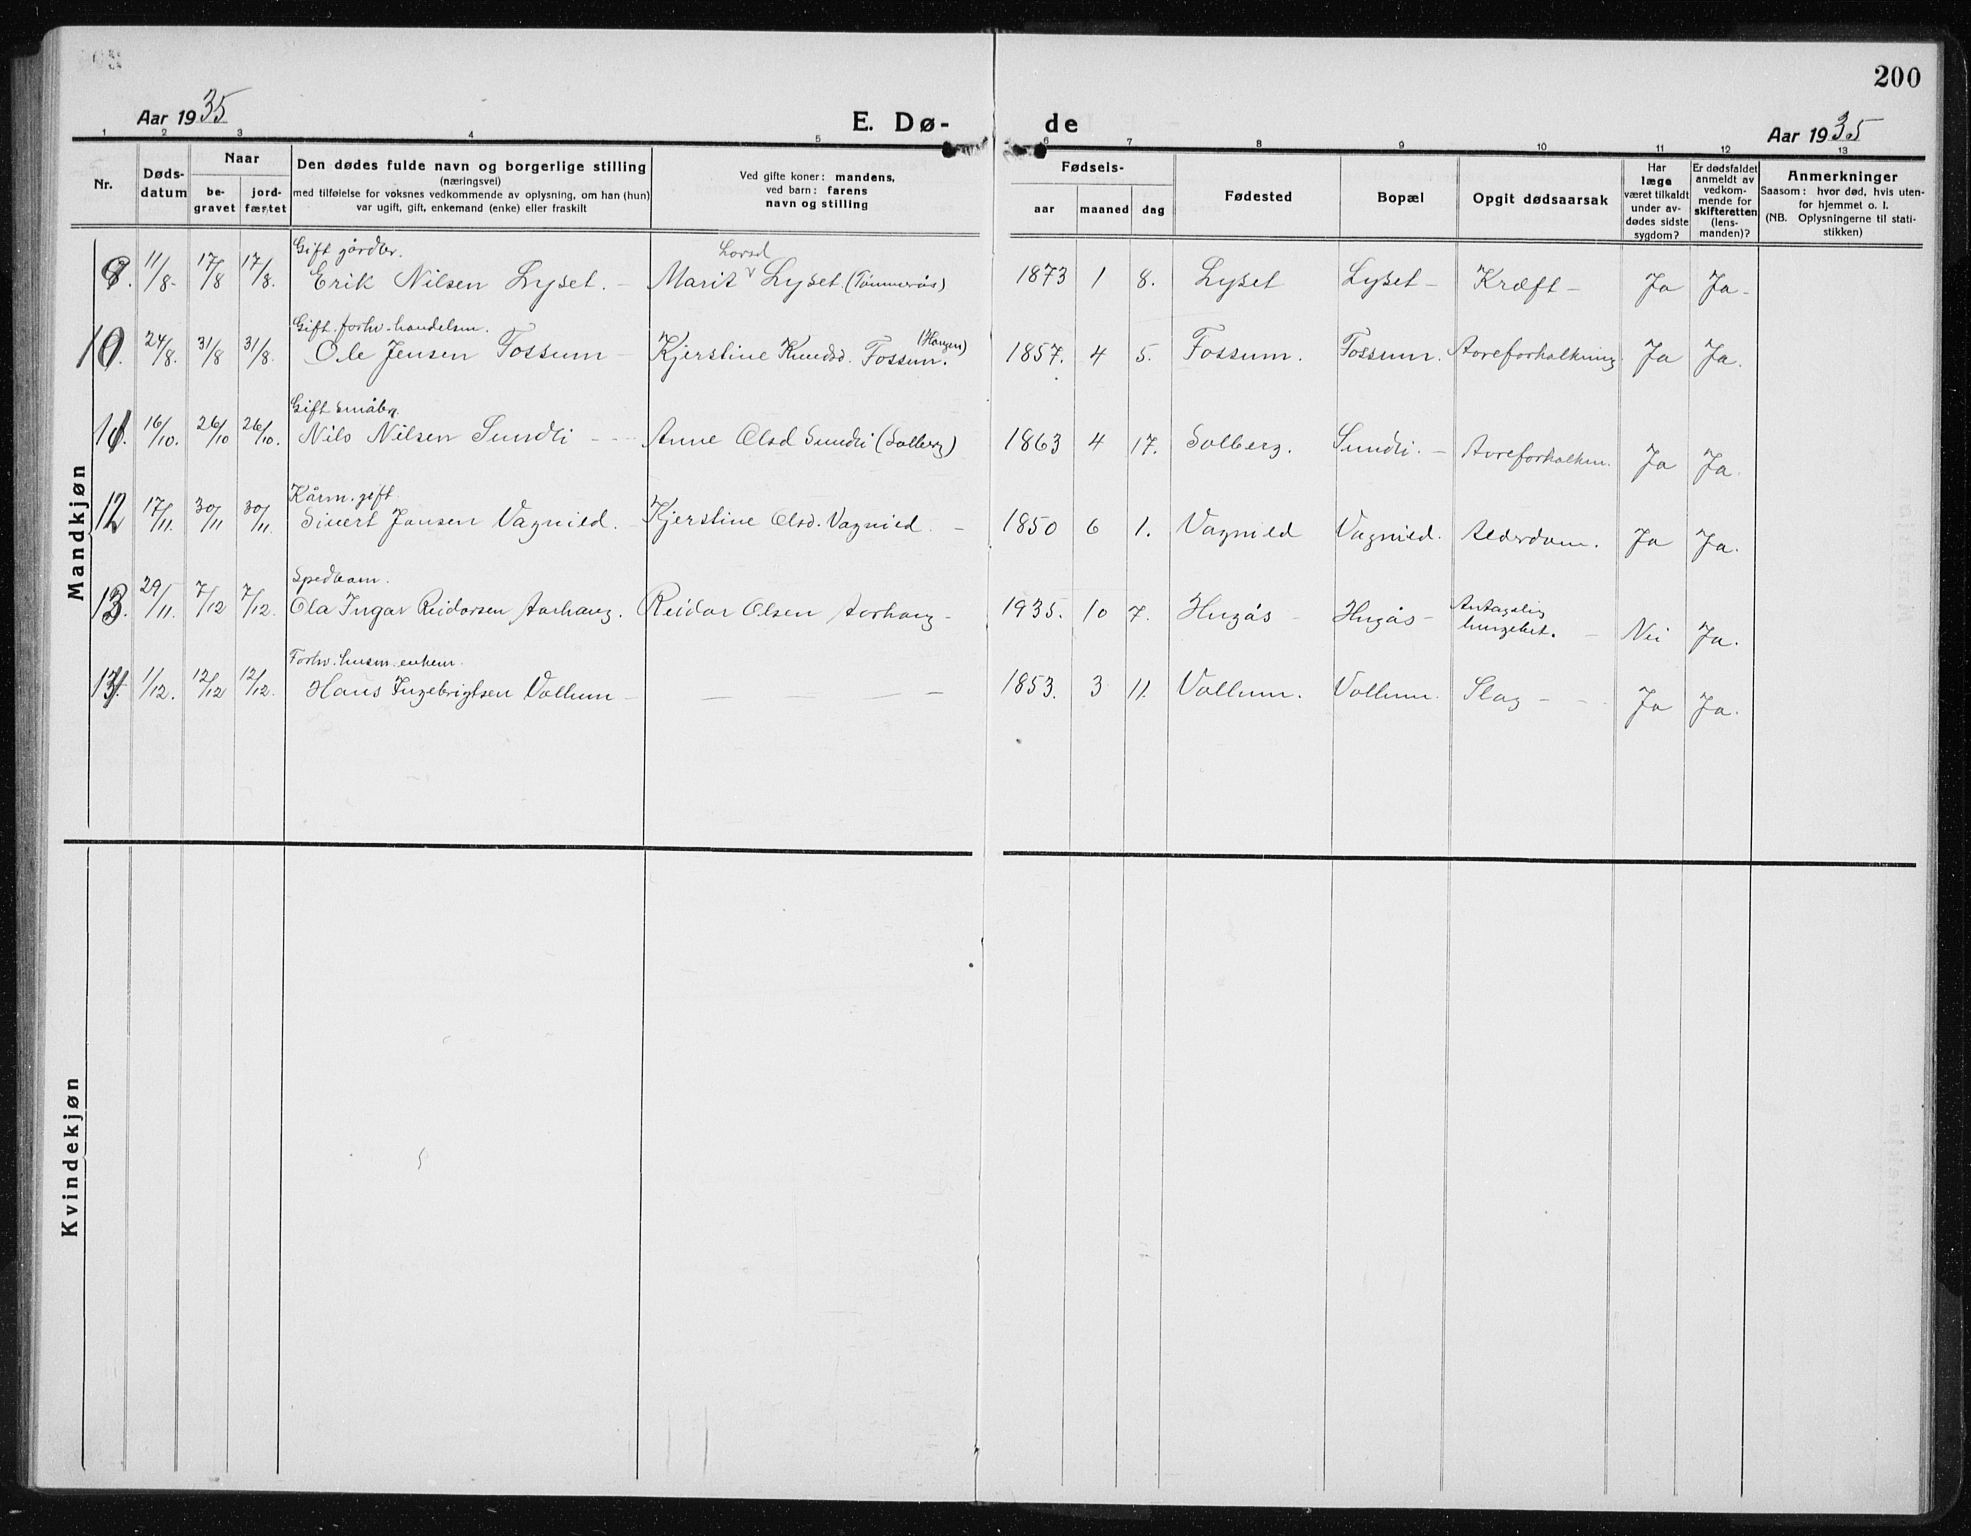 200
Aar 1935
E. Dø-
de
Aar 1935
1 2 3 4 5 6 7 8 9 10 11 12 13
Nr.
Døds-
datum
Naar
be-
gravet
jord-
fæstet
Den dødes fulde navn og borgerlige stilling
(næringsvei)
med tilføielse for voksnes vedkommende av oplysning, om han (hun)
var ugift, gift, enkemand (enke) eller fraskilt
Ved gifte koner: mandens,
ved barn: farens
navn og stilling
Fødsels-
aar
maaned
dag
Fødested
Bopæl
Opgit dødsaarsak
Har
læge
været tilkaldt
under av-
dødes sidste
sygdom?
Er dødsfaldet
anmeldt av
vedkom-
mende for
skifteretten
(lens-
manden)?
Anmerkninger
Saasom: hvor død, hvis uten-
for hjemmet o. l.
(NB. Oplysningerne til stati-
stikken)
Mandkjøn
Gift gårdbr. Larsd
9. 11/8. 17/8 17/8. Erik Nilsen Lyset. – Marit Lyset (Tømmerås) 1873 1 8. Lyset Lyset – Kræft – Ja Ja –
Gift. forhv. handelsm. (Haugen)
10. 24/8. 31/8 31/8. Ole Jensen Fossum – Kjerstine Knudsd. Fossum. 1857. 4 5. Fossum. Fossum. Aareforkalkning Ja Ja.
Gift småbr.
11. 16/10. 26/10 26/10. Nils Nilsen Sundli – Anne Olsd Sundli (Solberg) 1863 4 17. Solberg. Sundli. – Aareforkalkn. Ja Ja.
Kårm. gift.
12 17/11. 30/11 30/11. Sivert Jansen Vagnild. Kjerstine Olsd. Vagnild. – 1850 6 1. Vagnild Vagnild. Alderdom. Ja Ja.
Spedbarn.
13. 29/11. 7/12 7/12. Ola Ingar Reidarsen Aarhaug. Reidar Olsen Aarhaug – 1935. 10 7. Hugås – Hugås – Antagelig
lungebet. – Nei Ja.
Forhv. husm. enkem.
14. 1/12. 12/12 12/12. Hans Ingebrigtsen Vollum – – – – 1853. 3 11. Vollum. Vollum. Slag – Ja Ja.
Kvindekjøn